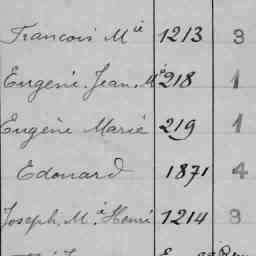 Francois M^ie 1213 3
Eugène Jean M^ie 218 1
Eugène Marie 219 1
Edouard 1871 4
Joseph M^ie Henri 1214 3